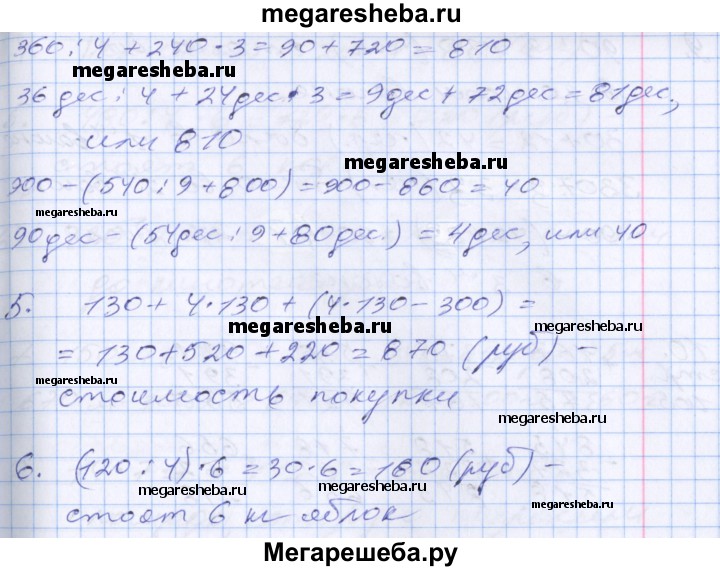 megaresheba.ru
360 : 4 + 240 · 3 = 90 + 720 = 810
megaresheba.ru
36 дес : 4 + 24 дес · 3 = 9 дес + 72 дес = 81 дес,
или 810
megaresheba.ru
900 - (540 : 9 + 800) = 900 - 860 = 40
megaresheba.ru
90 дес - (54 дес : 9 + 80 дес.) = 4 дес, или 40
megaresheba.ru
5. 130 + 4 · 130 + (4 · 130 - 300) =
megaresheba.ru megaresheba.ru
= 130 + 520 + 220 = 870 (руб) -
megaresheba.ru
стоимость покупки
megaresheba.ru
6. (120 : 4) · 6 = 30 · 6 = 180 (руб) -
megaresheba.ru megaresheba.ru megaresheba.ru
стоят 6 кг яблок
Мегарешеба.ру